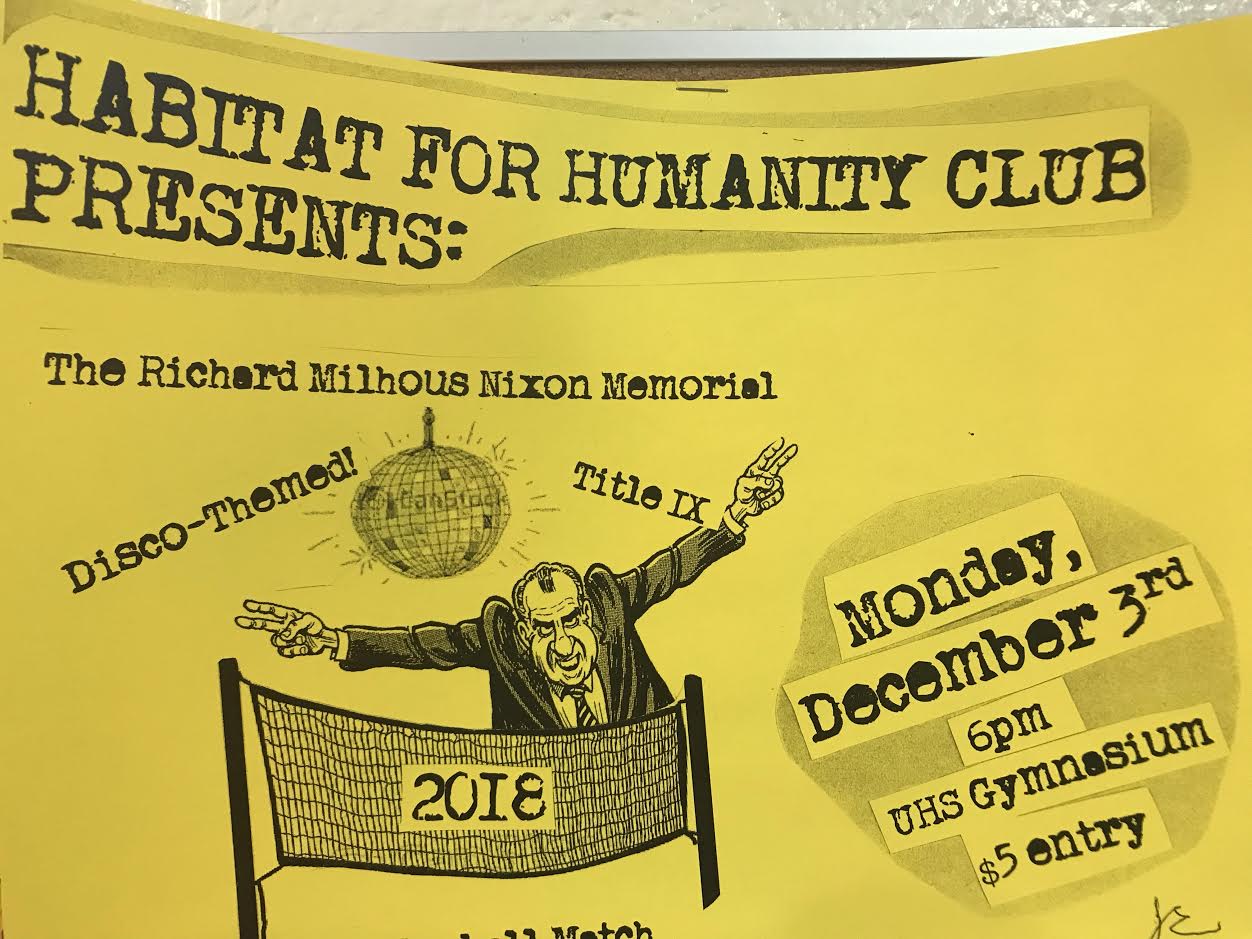 HABITAT FOR HUMANITY CLUB
PRESENTS:
The Richard Milhous Nixon Memorial
Disco-Themed!
CanStock
Title IX
2018
Monday,
December 3rd
6pm
UHS Gymnasium
$5 entry
Match